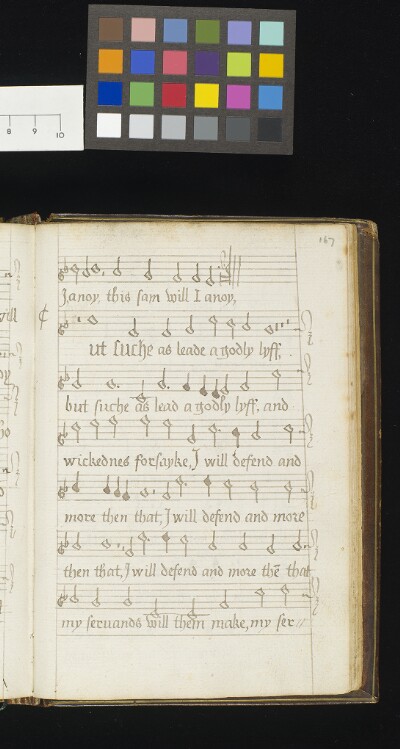 8 9 10
167
I anoy, this sam will I anoy,
ut suche as leade a godly lyff,
but suche as lead a godly lyff, and
wickednes forsayke, I will defend and
more then that, I will defend and more
then that, I will defend and more thē that
my seruands will them make, my ser